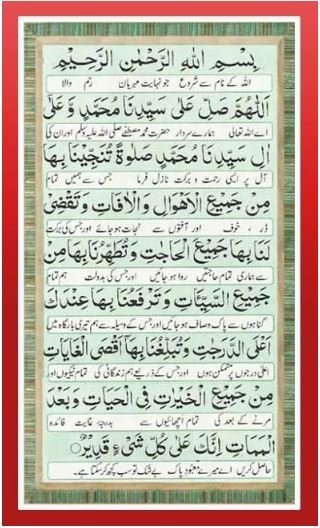 بِسْمِ اللهِ الرَّحْمٰنِ الرَّحِيْمِ
اللہ کے نام سے شروع جو نہایت مہربان رحم والا
اَللّٰهُمَّ صَلِّ عَلٰى سَيِّدِنَا مُحَمَّدٍ وَّعَلٰى
اے اللہ تعالی ہمارے سردار حضرت محمد مصطفے صلی اللہ علیہ وسلم اور ان کی
اٰلِ سَيِّدِنَا مُحَمَّدٍ صَلٰوةً تُنَجِّيْنَا بِهَا
آل پر ایسی رحمت و برکت نازل فرما جس سے ہمیں تمام
مِنْ جَمِيْعِ الْاَهْوَالِ وَالْاٰفَاتِ وَتَقْضِىْ
ڈر، خوف اور آفتوں سے نجات ہو جائے اور جس کی برکت
لَنَا بِهَا جَمِيْعَ الْحَاجٰتِ وَتُطَهِّرُنَا بِهَا مِنْ
سے ہماری تمام حاجتیں روا ہو جائیں اور جس کی بدولت ہم تمام
جَمِيْعِ السَّيِّاٰتِ وَتَرْفَعُنَا بِهَا عِنْدَكَ
گناہوں سے پاک و صاف ہو جائیں اور جس کے وسیلہ سے ہم تیری بارگاہ میں
اَعْلَى الدَّرَجٰتِ وَتُبَلِّغُنَا بِهَا اَقْصَى الْغَايَاتِ
اعلی درجوں پر متمکن ہوں اور جس کے ذریعے ہم زندگانی کی تمام نیکیوں اور
مِنْ جَمِيْعِ الْخَيْرٰتِ فِى الْحَيَاتِ وَبَعْدَ
مرنے کے بعد کی تمام اچھائیوں سے بدرجہ غایت فائدہ
الْمَمَاتِ اِنَّكَ عَلٰى كُلِّ شَىْءٍ قَدِيْرٌ
حاصل کریں اے میرے معبود پاک بے شک تو سب کچھ کر سکتا ہے۔